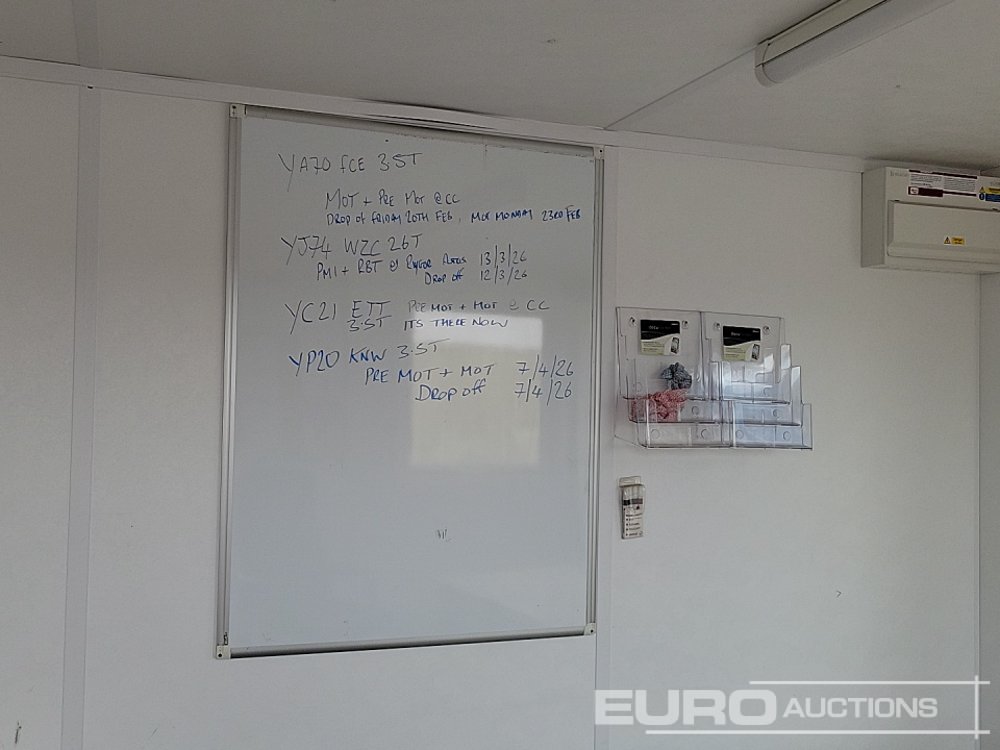 YA70 FCE 3.5T
MOT + PRE MOT @ CC
DROP OF FRIDAY 20TH FEB, MOT MONDAY 23RD FEB
YJ74 WZC 26T
PMI + RBT @ 13/3/26
DROP OFF 12/3/26
YC21 ETT PRE MOT + MOT @ CC
3.5T ITS THERE NOW
YP20 KNW 3.5T
PRE MOT + MOT 7/4/26
DROP OFF 7/4/26
EURO AUCTIONS